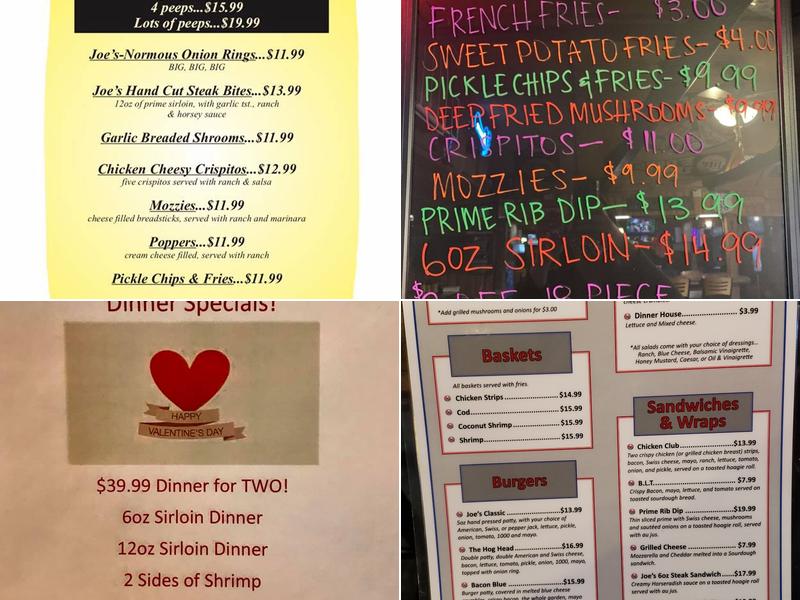 4 peeps...$15.99
Lots of peeps...$19.99
Joe's-Normous Onion Rings...$11.99
BIG, BIG, BIG
Joe's Hand Cut Steak Bites...$13.99
12oz of prime sirloin, with garlic tst., ranch
& horsey sauce
Garlic Breaded Shrooms...$11.99
Chicken Cheesy Crispitos...$12.99
five crispitos served with ranch & salsa
Mozzies...$11.99
cheese filled breadsticks, served with ranch and marinara
Poppers...$11.99
cream cheese filled, served with ranch
Pickle Chips & Fries...$11.99
FRENCH FRIES- $3.00
SWEET POTATO FRIES- $4.00
PICKLE CHIPS & FRIES- $9.99
DEEP FRIED MUSHROOMS- $9.99
CRISPITOS- $11.00
MOZZIES- $9.99
PRIME RIB DIP- $13.99
6OZ SIRLOIN- $14.99
18 PIECE
Dinner Specials!
HAPPY
VALENTINE'S DAY
$39.99 Dinner for TWO!
6oz Sirloin Dinner
12oz Sirloin Dinner
2 Sides of Shrimp
*Add grilled mushrooms and onions for $3.00
Baskets
All baskets served with fries.
Chicken Strips..............................$14.99
Cod...............................................$15.99
Coconut Shrimp...........................$15.99
Shrimp..........................................$15.99
Burgers
Joe's Classic................................$13.99
5oz hand pressed patty, with your choice of
American, Swiss, or pepper jack, lettuce, pickle,
onion, tomato, 1000 and mayo.
The Hog Head............................$16.99
Double patty, double American and Swiss cheese,
bacon, lettuce, tomato, pickle, onion, 1000, mayo,
topped with onion ring.
Bacon Blue.................................$15.99
Burger patty, covered in melted blue cheese
Dinner House...........................$3.99
Lettuce and Mixed cheese.
*All salads come with your choice of dressings...
Ranch, Blue Cheese, Balsamic Vinaigrette,
Honey Mustard, Caesar, or Oil & Vinaigrette
Sandwiches
& Wraps
Chicken Club............................$13.99
Two crispy chicken (or grilled chicken breast) strips,
bacon, Swiss cheese, mayo, ranch, lettuce, tomato,
onion, and pickle, served on a toasted hoagie roll.
B.L.T..........................................$7.99
Crispy Bacon, mayo, lettuce, and tomato served on
toasted sourdough bread.
Prime Rib Dip..........................$19.99
Thin sliced prime with Swiss cheese, mushrooms
and sautéed onions on a toasted hoagie roll, served
with au jus.
Grilled Cheese.........................$7.99
Mozzarella and Cheddar melted into a Sourdough
sandwich.
Joe's 6oz Steak Sandwich......$17.99
Creamy Horseradish sauce on a toasted hoagie roll
served with au jus.